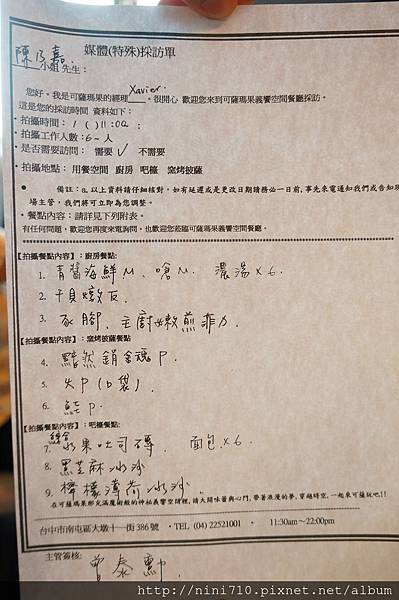 媒體(特殊)採訪單
陳乃嘉 小姐 先生：
您好。我是可薩瑪果的經理Xavier。很開心 歡迎您來到可薩瑪果義饗空間餐廳採訪。
這是您的採訪時間 資料如下：
‧拍攝時間： 1 / ( )11:00 ；
‧拍攝工作人數：6~人
‧是否需要訪問： 需要 ✓ 不需要
‧拍攝地點： 用餐空間 廚房 吧檯 窯烤披薩
● 備註：a.以上資料請仔細核對，如有延遲或是更改日期請務必一日前,事先來電通知我們或告知現
場主管，我們將可立即為您調整。
‧餐點內容：請詳見下列附表。
有任何問題，歡迎您再度來電詢問，也歡迎您蒞臨可薩瑪果義饗空間餐廳。
【拍攝餐點內容】：廚房餐點:
1. 青醬海鮮M、嗆M、 濃湯×6.
2. 干貝燉飯
3. 豕腳、主廚嫩煎菲力.
【拍攝餐點內容】：窯烤披薩餐點
4. 黯然銷魂P.
5. 火P(口袋).
6. 鮭P.
【拍攝餐點內容】：吧檯餐點
7. 綜合水果吐司磚、 面包×6.
8. 黑芝麻冰沙
9. 檸檬薄荷冰沙.
在可薩瑪果那充滿魔術般的神祕義饗空間裡,請大開味蕾與心門,帶著浪漫的夢,穿越時空,一起來可薩玩吧!!
台中市南屯區大墩十一街386號 ‧TEL (04) 22521001 ‧ 11:30am~22:00pm
主管簽核:
曾泰勳
http://nini710.pixnet.net/album